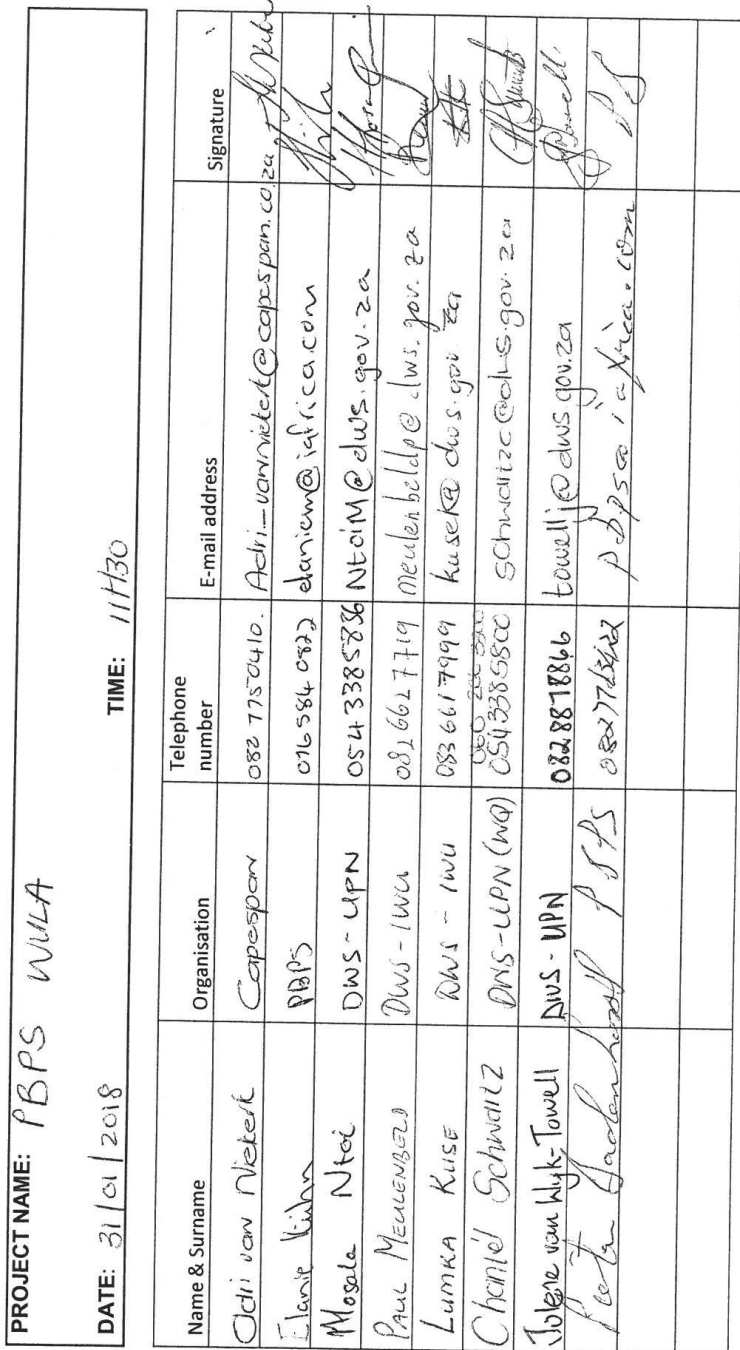 PROJECT NAME: PBPS WULA
DATE: 31/01/2018 TIME: 11H30
Name & Surname Organisation Telephone number E-mail address Signature
Adri van Niekerk Capespan 082 7750410. Adri_vanniekerk@capespan.co.za
Elanie Kühn PBPS 016 584 0822 elaniem@iafrica.com
Mosala Ntoi DWS-UPN 054 3385836 NtoiM@dws.gov.za
PAUL MEULENBELD DWS-IWU 0826627719 meulenbeldp@dws.gov.za
LUMKA KUSE DWS-IWU 0836617999 kusek@dws.gov.za
Chantél Schwartz DWS-UPN (WQ) 0543385800 schwartzc@dws.gov.za
Julene van Wyk-Towell DWS-UPN 0828878866 towellj@dws.gov.za
PBPS pbps@iafrica.com